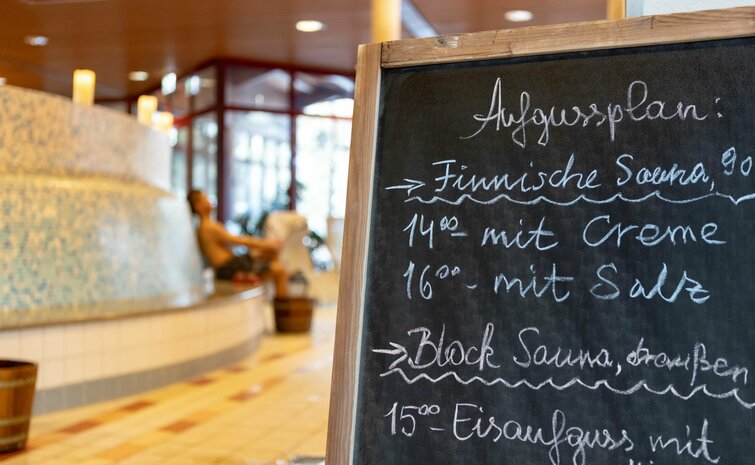 Aufgussplan:
→ Finnische Sauna, 90
14⁰⁰- mit Creme
16⁰⁰- mit Salz
→ Block Sauna, draußen
15⁰⁰- Eisaufguss mit